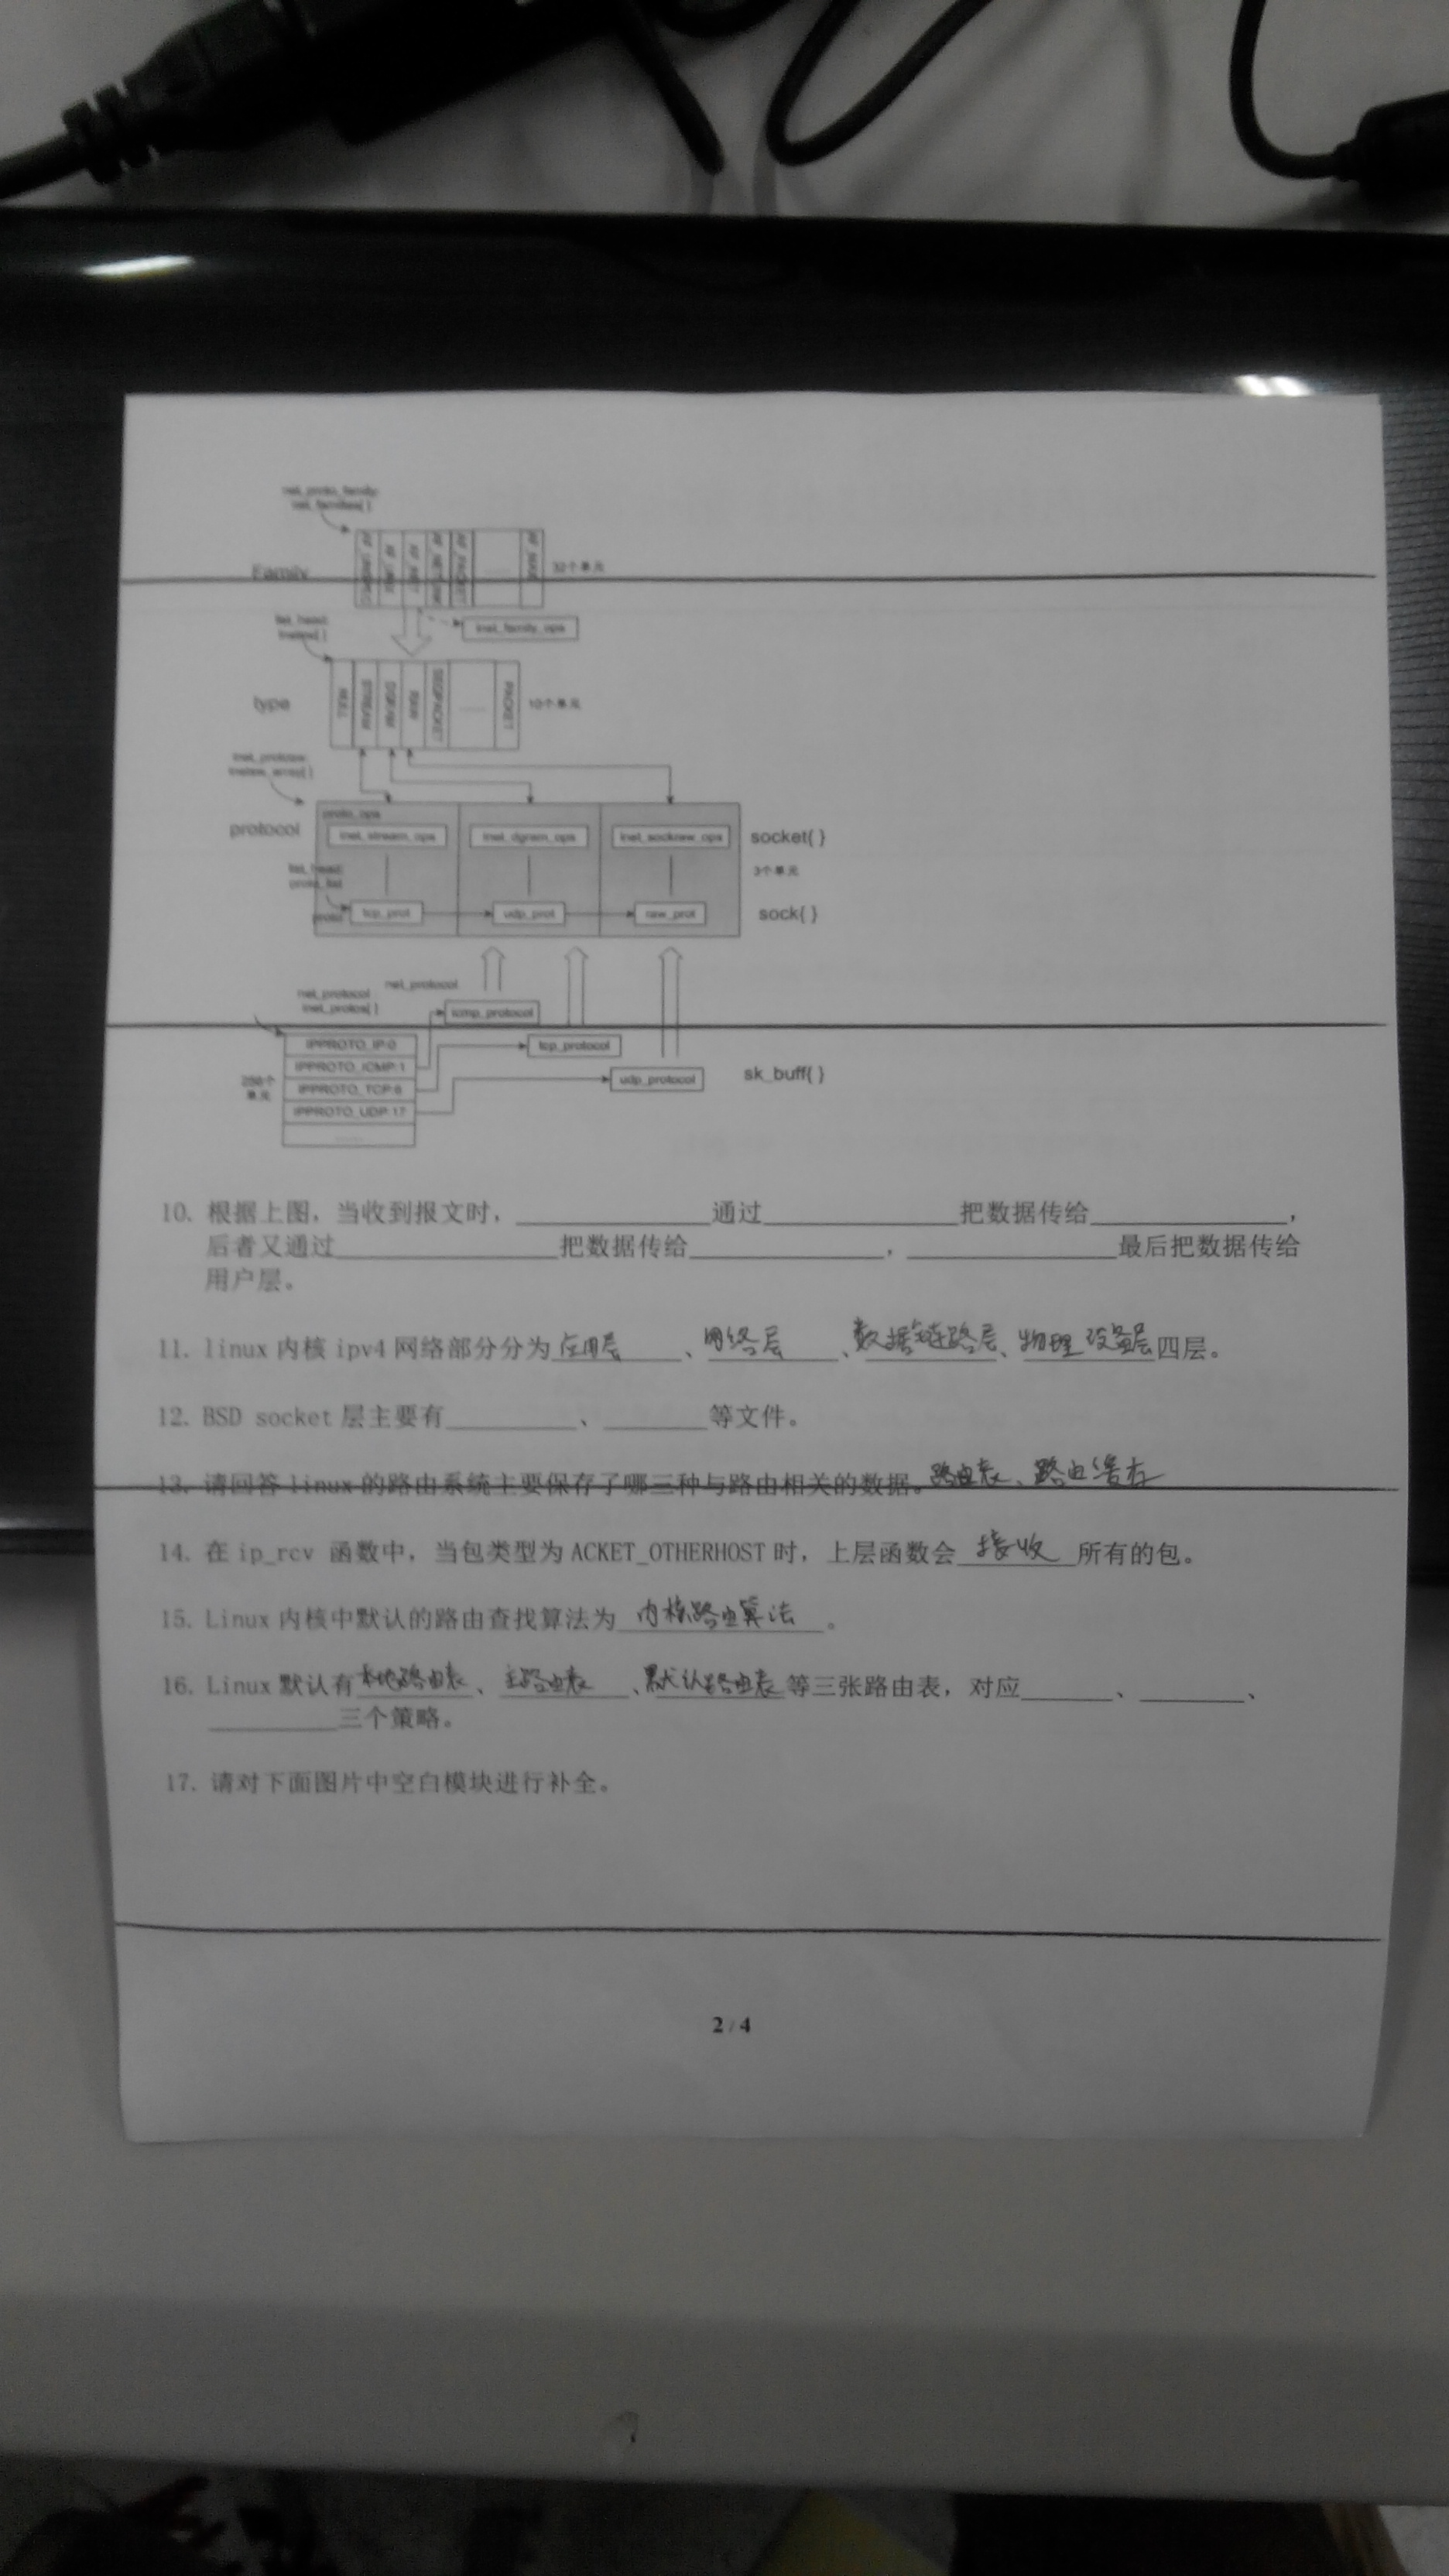 net_proto_family
net_families[ ]
Family
32个单元
inet_family_ops
list_head
inetsw[ ]
type
NULL
STREAM
DGRAM
RAW
SEQPACKET
......
PACKET
10个单元
inet_protosw
inetsw_array[ ]
protocol
proto_ops
inet_stream_ops
inet_dgram_ops
inet_sockraw_ops
socket{ }
3个单元
list_head
proto_list
proto
tcp_prot
udp_prot
raw_prot
sock{ }
net_protocol
net_protocol
inet_protos[ ]
icmp_protocol
IPPROTO_IP:0
tcp_protocol
256个
单元
IPPROTO_ICMP:1
udp_protocol
sk_buff{ }
IPPROTO_TCP:6
IPPROTO_UDP:17
......
10. 根据上图，当收到报文时，______________通过______________把数据传给______________，
后者又通过________________把数据传给______________，_______________最后把数据传给
用户层。
11. linux 内核 ipv4 网络部分分为应用层、网络层、数据链路层、物理设备层四层。
12. BSD socket 层主要有__________、________等文件。
13. 请回答 linux 的路由系统主要保存了哪三种与路由相关的数据。路由表、路由缓存
14. 在 ip_rcv 函数中，当包类型为 ACKET_OTHERHOST 时，上层函数会 接收 所有的包。
15. Linux 内核中默认的路由查找算法为 内核路由算法 。
16. Linux 默认有本地路由表、主路由表、默认路由表等三张路由表，对应_______、________、
__________三个策略。
17. 请对下面图片中空白模块进行补全。
2 / 4